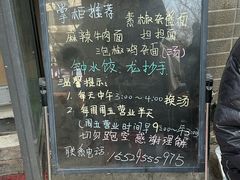 掌柜推荐 素椒杂酱面
麻辣牛肉面 担担面
泡椒鸡杂面(汤)
钟水饺 龙抄手
温馨提示:
1、每天中午3:00~4:00揍汤
2、每周周五营业半天
(周五营业时间早9:00~
切勿跑空 感谢理解
联系电话: 16529555975